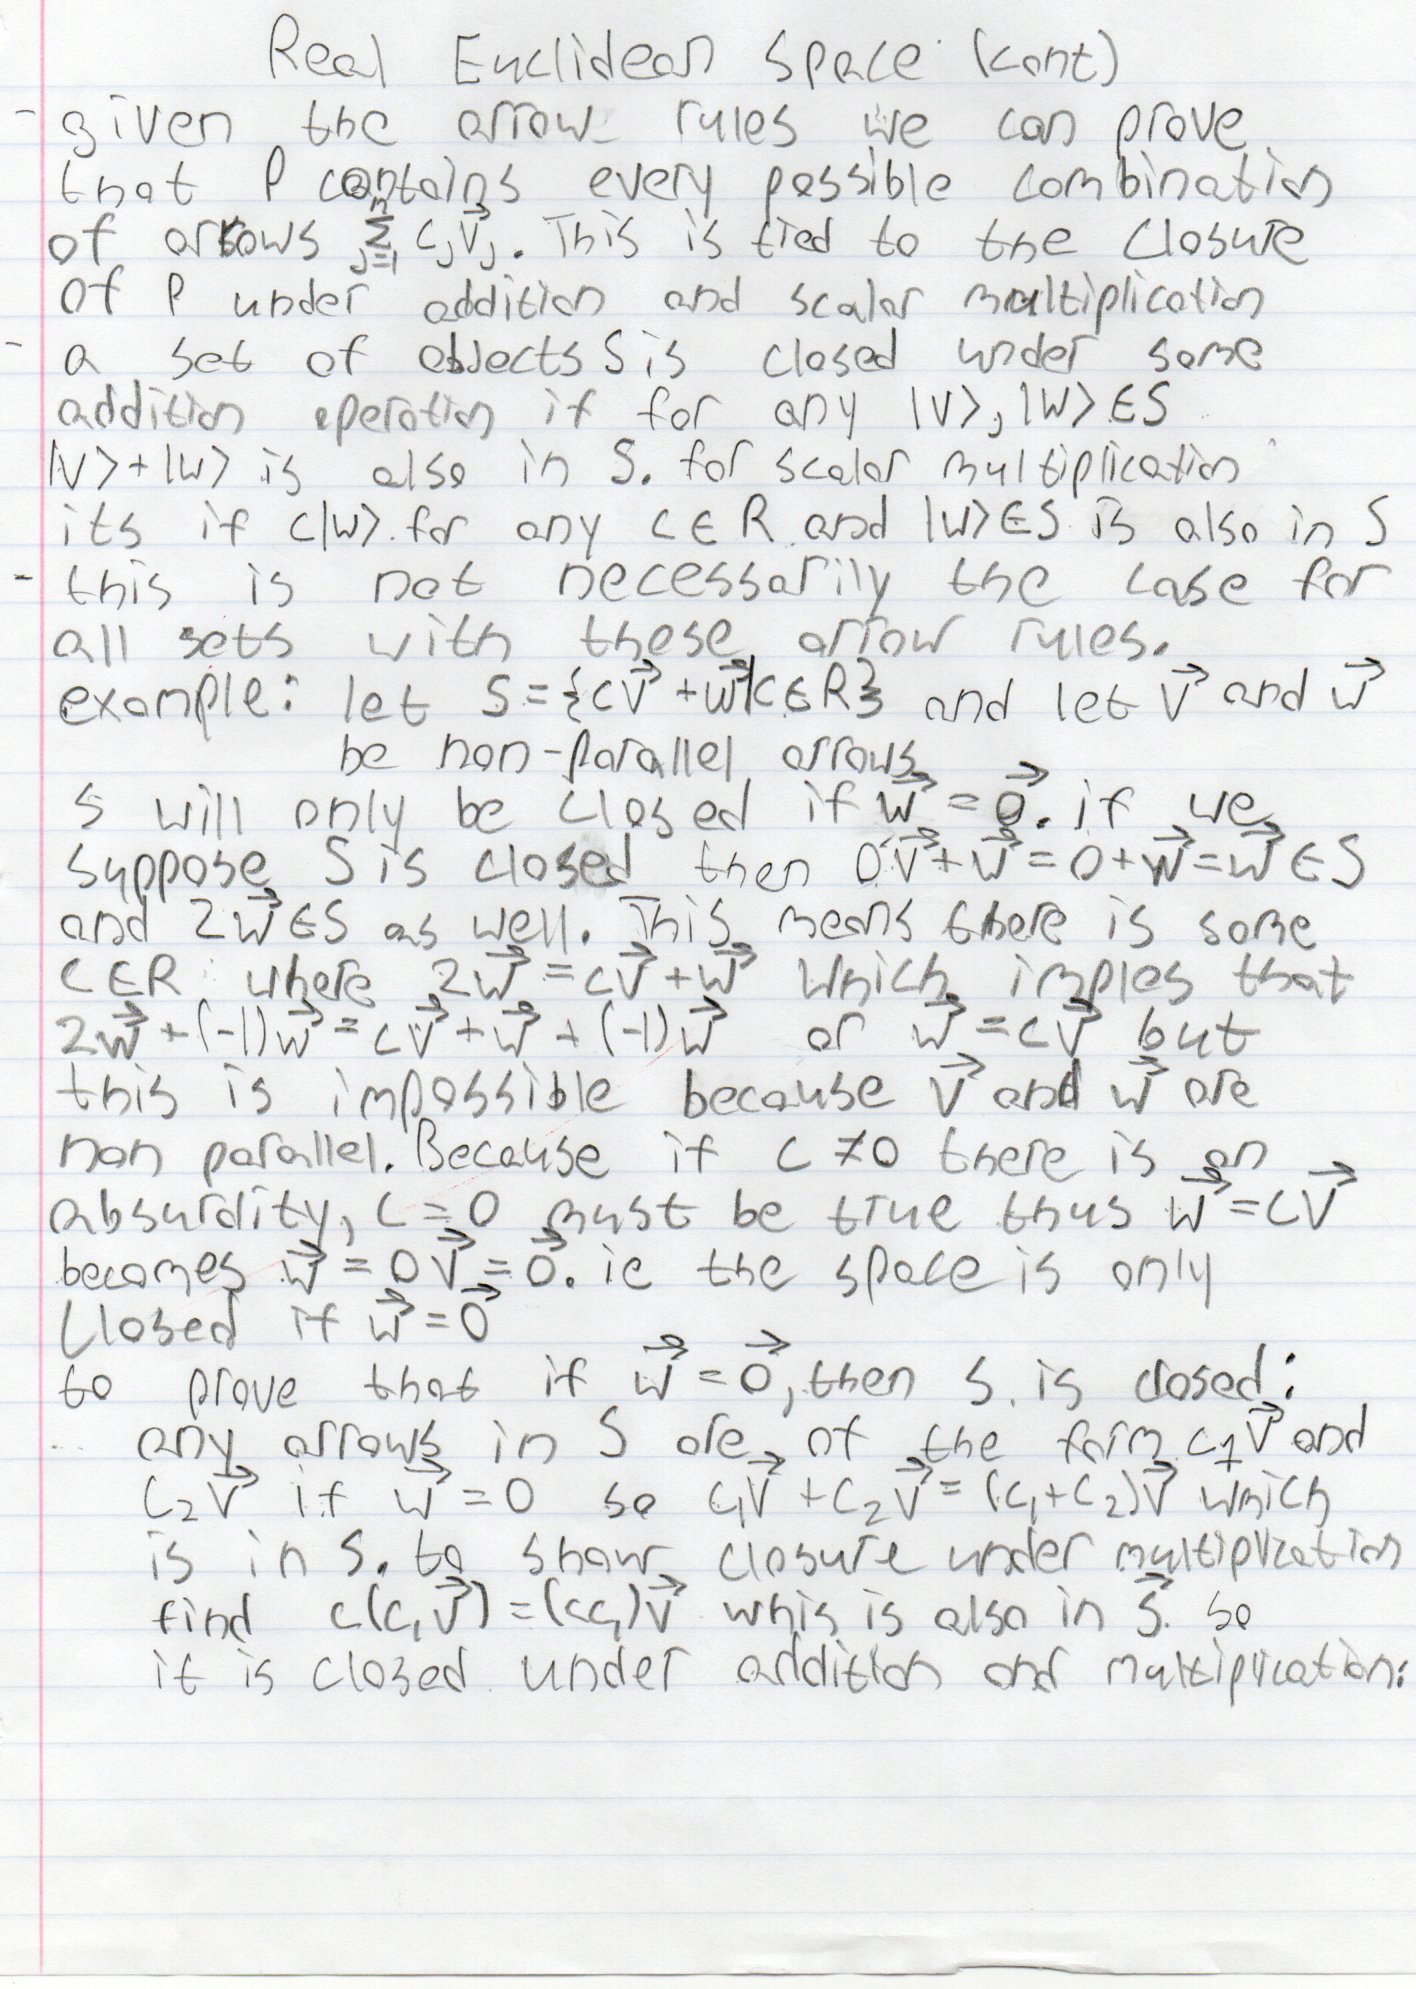 Real Euclidean Space (cont)
- given the arrow rules we can prove
that P contains every possible combination
of arrows $\sum_{j=1}^{n} c_j\vec{v}_j$. This is tied to the closure
of P under addition and scalar multiplication
- a set of objects S is closed under some
addition operation if for any |V>, |W> ∈ S
|V> + |W> is also in S. for scalar multiplication
its if c|W> for any c ∈ R and |W> ∈ S is also in S
- this is not necessarily the case for
all sets with these arrow rules.
example: let S = {c$\vec{v}$ + $\vec{w}$|c ∈ R} and let $\vec{v}$ and $\vec{w}$
be non-parallel arrows
S will only be closed if $\vec{w}$ = $\vec{0}$. if we
suppose S is closed then 0$\vec{v}$ + $\vec{w}$ = 0 + $\vec{w}$ = $\vec{w}$ ∈ S
and 2$\vec{w}$ ∈ S as well. This means there is some
c ∈ R where 2$\vec{w}$ = c$\vec{v}$ + $\vec{w}$ which imples that
2$\vec{w}$ + (-1)$\vec{w}$ = c$\vec{v}$ + $\vec{w}$ + (-1)$\vec{w}$ or $\vec{w}$ = c$\vec{v}$ but
this is impossible because $\vec{v}$ and $\vec{w}$ are
non parallel. Because if c ≠ 0 there is an
absurdity, c = 0 must be true thus $\vec{w}$ = c$\vec{v}$
becomes $\vec{w}$ = 0$\vec{v}$ = $\vec{0}$. ie the space is only
closed if $\vec{w}$ = $\vec{0}$
to prove that if $\vec{w}$ = $\vec{0}$, then S. is closed:
any arrows in S are of the form c₁$\vec{v}$ and
c₂$\vec{v}$ if $\vec{w}$ = 0 so c₁$\vec{v}$ + c₂$\vec{v}$ = (c₁+c₂)$\vec{v}$ which
is in S. to show closure under multiplication
find c(c₁$\vec{v}$) = (cc₁)$\vec{v}$ whis is also in $\vec{S}$. so
it is closed under addition and multiplication.